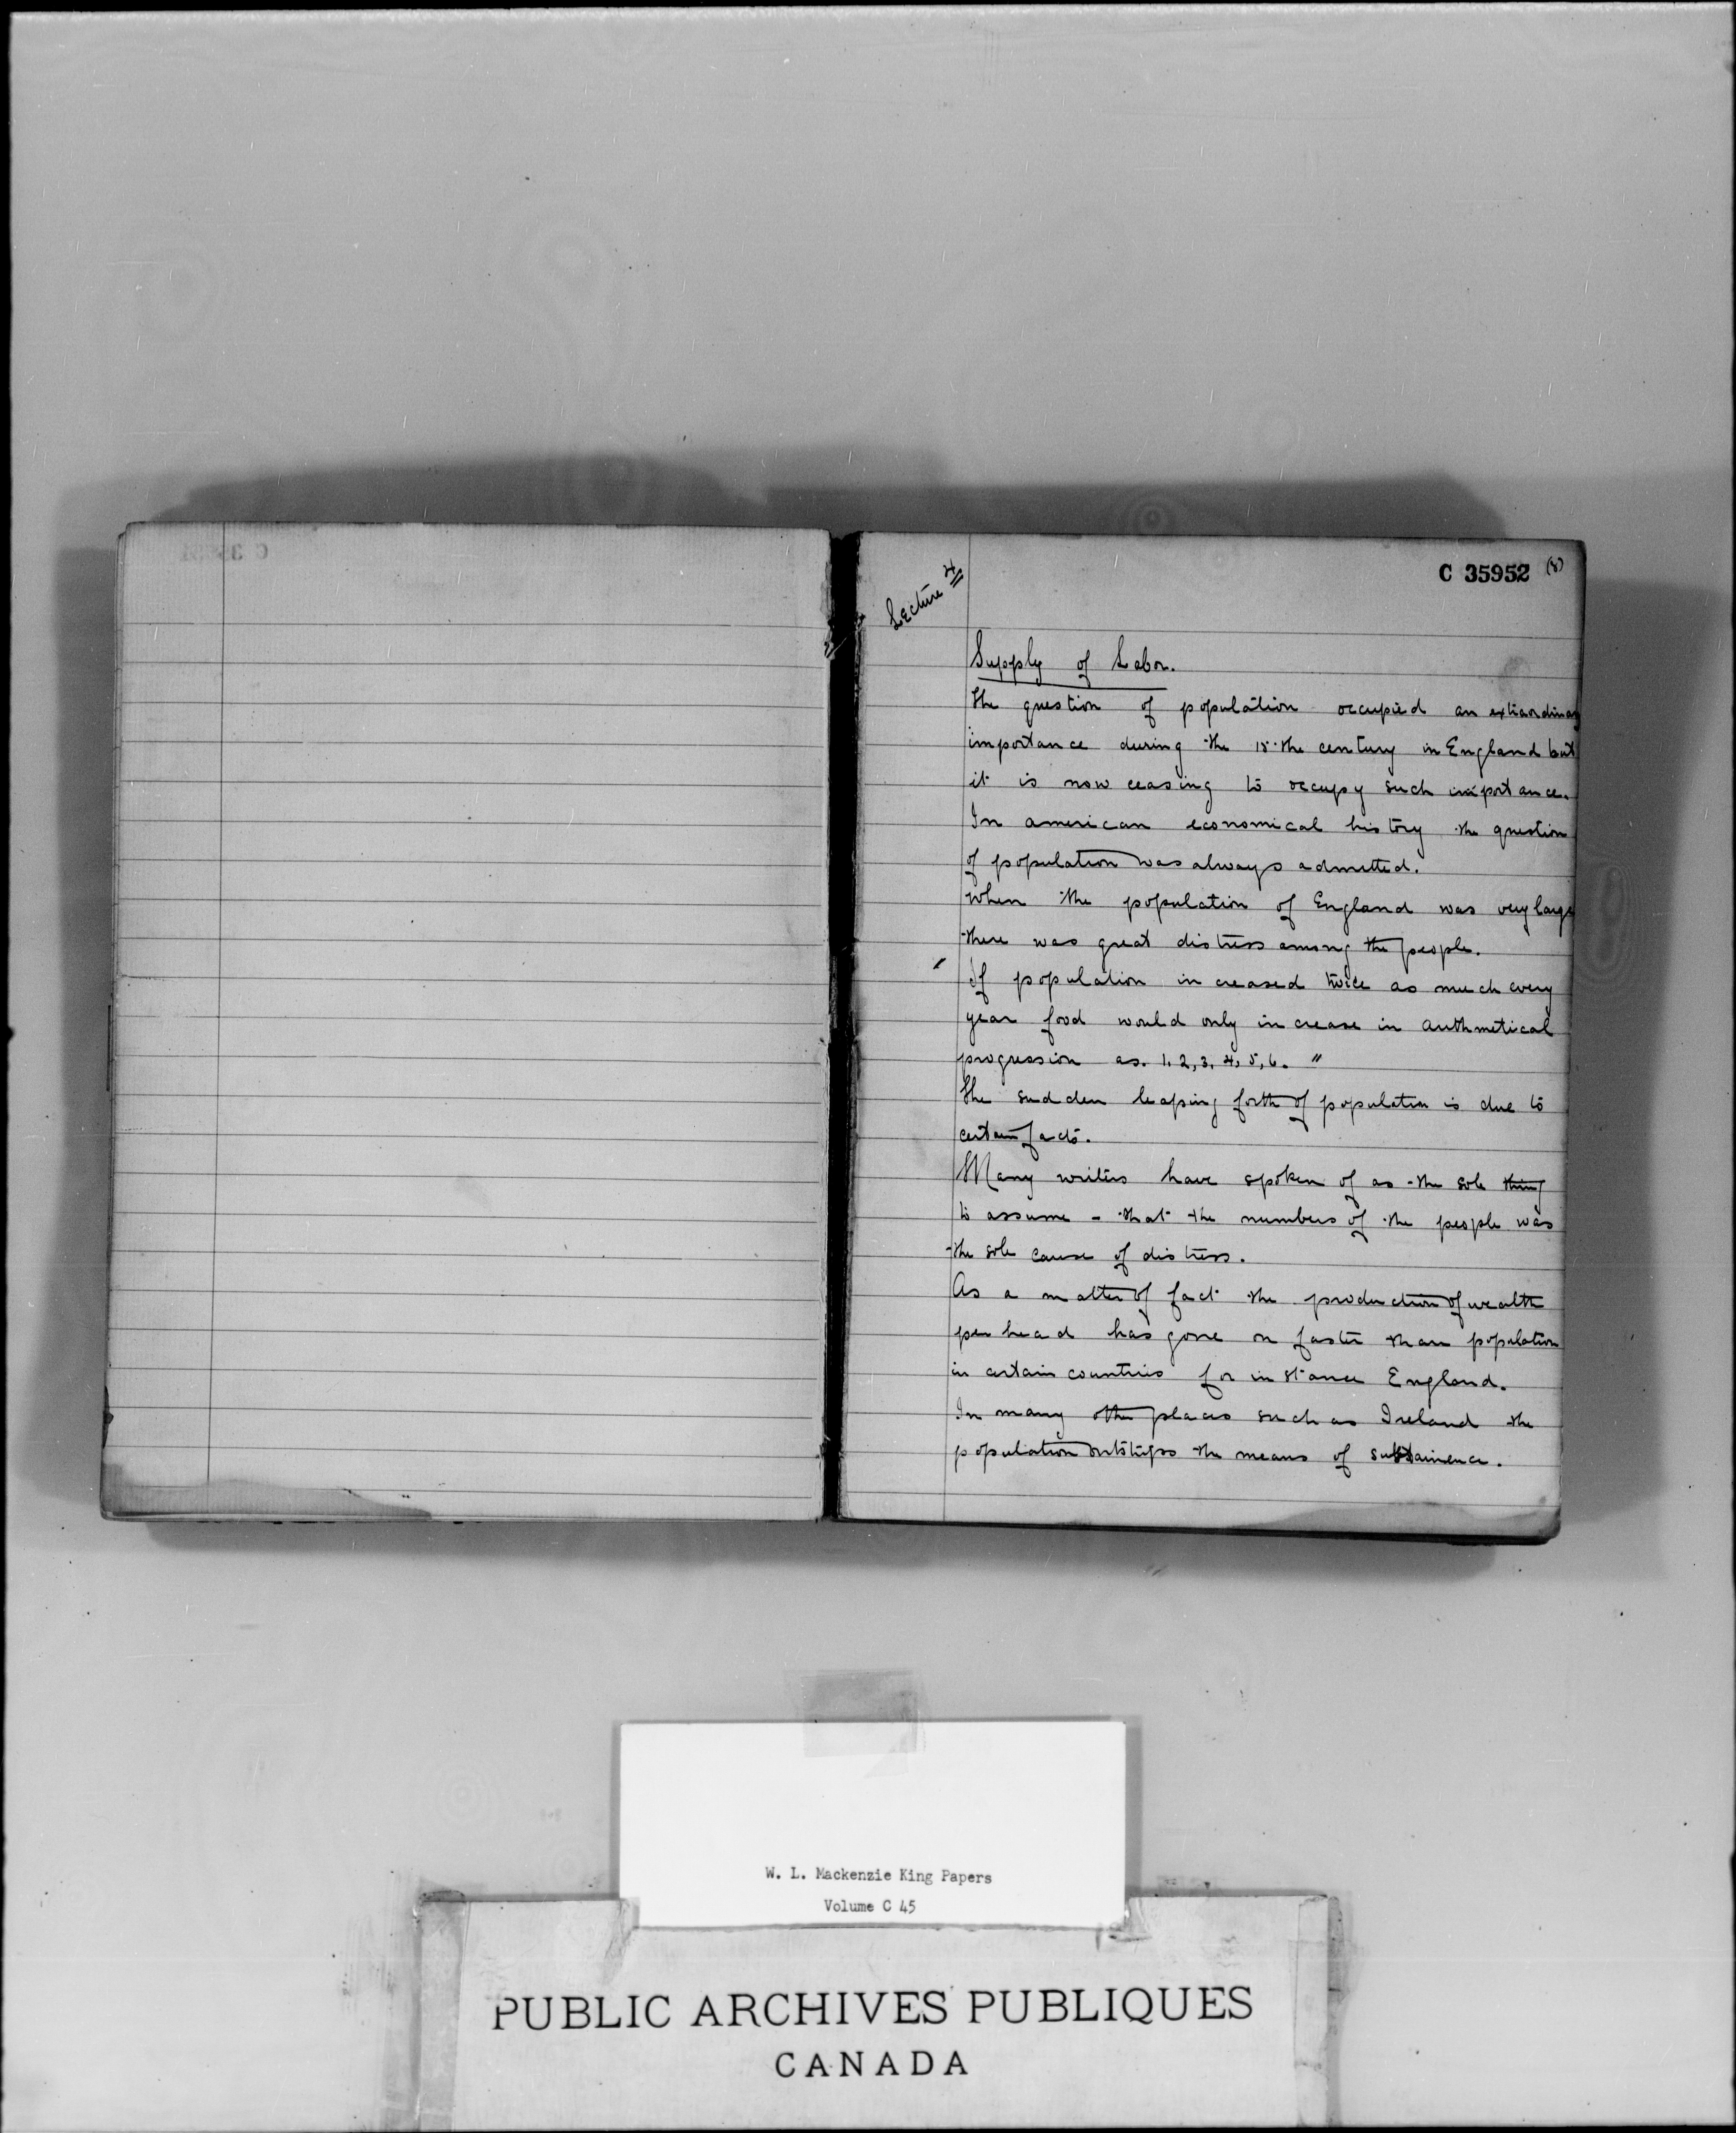 C 35952 (8)
Lecture 4
Supply of Labor.
The question of population occupied an extraordinary
importance during the 18.the century in England but
it is now ceasing to occupy such importance.
In american economical history the question
of population was always admitted.
When the population of England was very large
there was great distress among the people.
" If population increased twice as much every
year food would only increase in arithmetical
progression as. 1, 2, 3, 4, 5, 6. "
The sudden leaping forth of population is due to
certain facts.
Many writers have spoken of as the sole thing
to assume - that the numbers of the people was
the sole cause of distress.
As a matter of fact the production of wealth
per head has gone on faster than population
in certain countries for instance England.
In many other places such as Ireland the
population outstrips the means of substainence.
W. L. Mackenzie King Papers
Volume C 45
PUBLIC ARCHIVES PUBLIQUES
CANADA